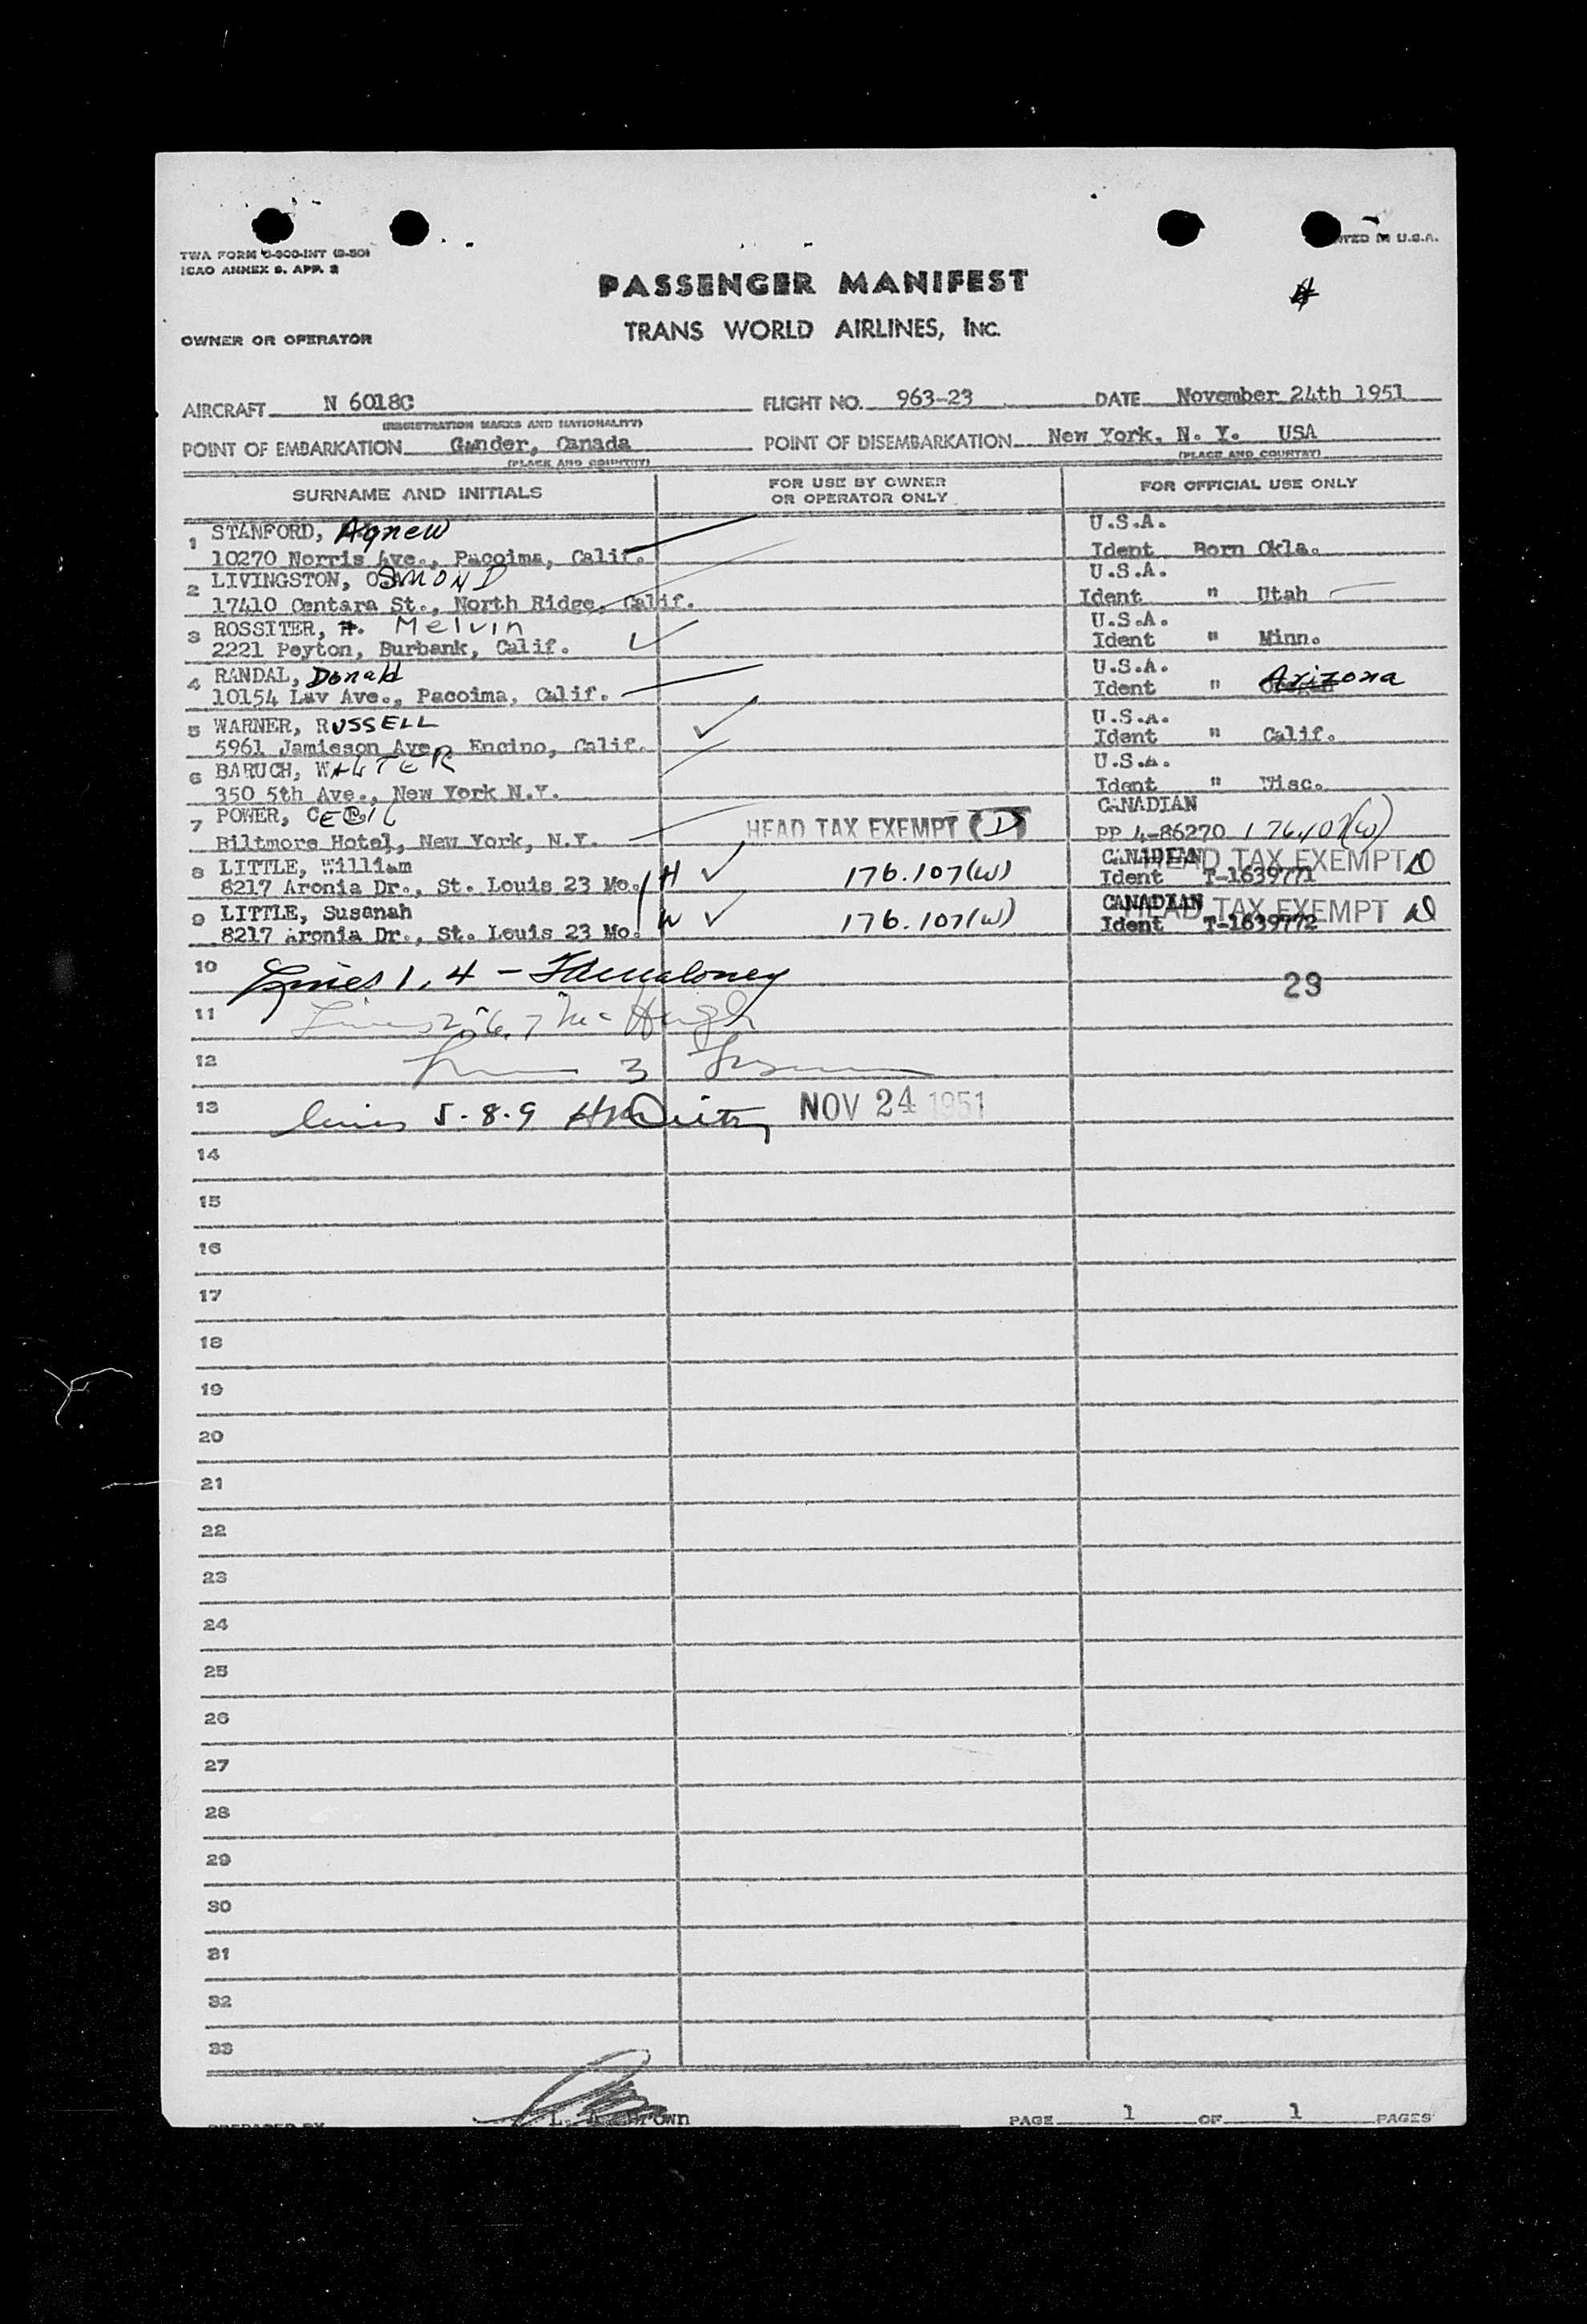 TWA FORM O-900-INT (9-50)
ICAO ANNEX 9. APP. 3
IN U.S.A.
PASSENGER MANIFEST
TRANS WORLD AIRLINES, INC.
OWNER OR OPERATOR
AIRCRAFT N 6018C FLIGHT NO. 963-23 DATE November 24th 1951
(REGISTRATION MARKS AND NATIONALITY)
POINT OF EMBARKATION Gander, Canada POINT OF DISEMBARKATION New York, N. Y. USA
(PLACE AND COUNTRY) (PLACE AND COUNTRY)
SURNAME AND INITIALS FOR USE BY OWNER OR OPERATOR ONLY FOR OFFICIAL USE ONLY
1 STANFORD, Agnew U.S.A.
10270 Norris Ave., Pacoima, Calif. Ident Born Okla.
2 LIVINGSTON, OSMOND U.S.A.
17410 Centara St., North Ridge, Calif. Ident " Utah
3 ROSSITER, H. Melvin U.S.A.
2221 Peyton, Burbank, Calif. Ident " Minn.
4 RANDAL, Donald U.S.A.
10154 Lav Ave., Pacoima, Calif. Ident " Arizona
5 WARNER, RUSSELL U.S.A.
5961 Jamieson Ave, Encino, Calif. Ident " Calif.
6 BARUCH, WALTER U.S.A.
350 5th Ave., New York N.Y. Ident " Wisc.
7 POWER, CECIL CANADIAN
Biltmore Hotel, New York, N.Y. HEAD TAX EXEMPT (D) PP 4-86270 176.107(W)
8 LITTLE, William CANADIAN HEAD TAX EXEMPT D
8217 Aronia Dr., St. Louis 23 Mo. H 176.107(W) Ident T-1639771
9 LITTLE, Susanah CANADIAN HEAD TAX EXEMPT D
8217 Aronia Dr., St. Louis 23 Mo. W 176.107(W) Ident T-1639772
10 Lines 1, 4 - Maloney 23
11 Lines 2, 6, 7 McHugh
12 3
13 lines 5-8-9 NOV 24 1951
14
15
16
17
18
19
20
21
22
23
24
25
26
27
28
29
30
31
32
33
PREPARED BY L. Brown PAGE 1 OF 1 PAGES